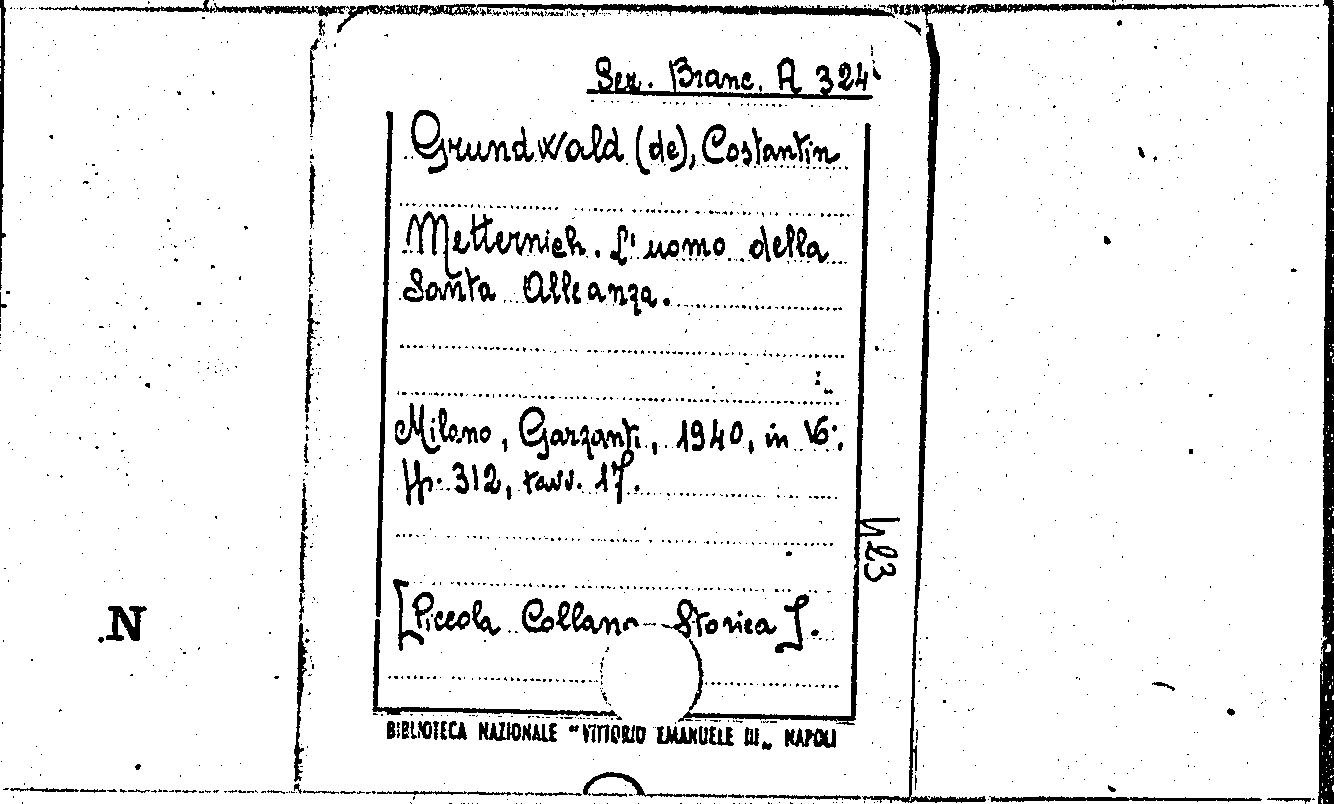 Sez. Branc. A 324
Grundwald (de), Costantin
Metternich. L'uomo della
Santa Alleanza.
Milano, Garzanti, 1940, in 16°.
pp. 312, tavv. 17.
423
[Piccola Collana Storica].
N
BIBLIOTECA NAZIONALE "VITTORIO EMANUELE III„ NAPOLI